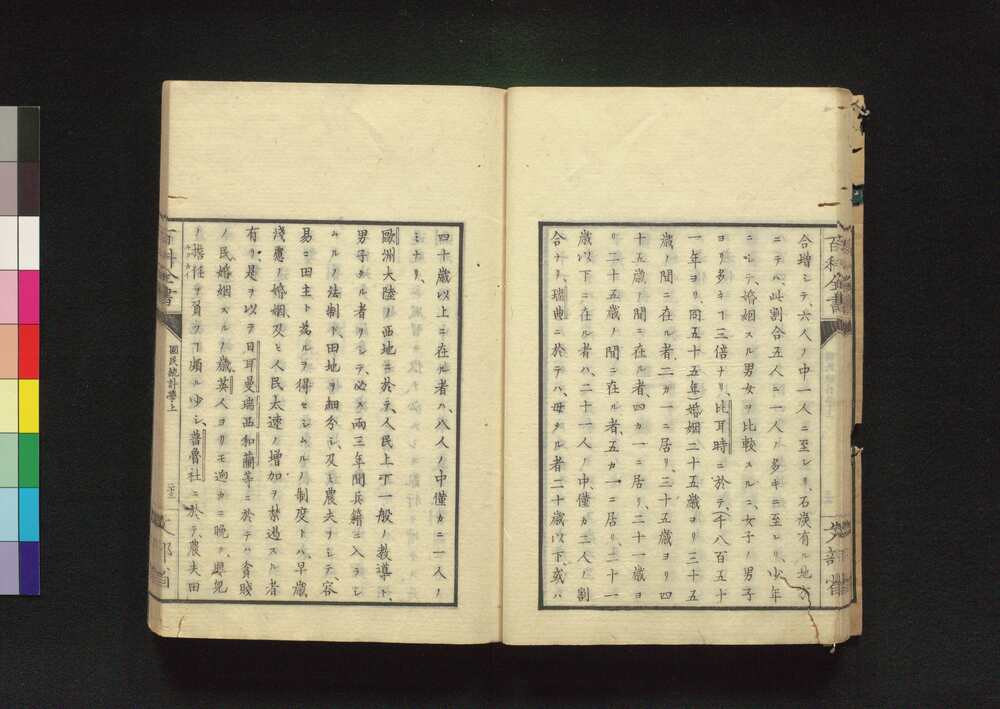 合增シテ、六人ノ中一人ニ至レリ、石漠有ル地方
ニテハ、此割合五人ニ一人ノ多キニ至レリ、少年
ニシテ、婚姻スル男女ヲ比較スルニ、女子ノ男子
ヨリ多キヿ三倍ナリ、比耳時ニ於テ、(千八百五十
一年ヨリ、同五十五年)婚姻二十五歲ヨリ三十五
歲ノ間ニ在ル者、二カ一ニ居リ、三十五歲ヨリ四
十五歲ノ間ニ在ル者、四カ一ニ居リ、二十一歲ヨ
リ二十五歲ノ間ニ在ル者、五カ一ニ居リ、二十一
歲以下ニ在ル者ハ、二十一人ノ中、僅カニ一人ノ割
合ナリ、瑞典ニ於テハ、母タル者二十歲以下、或ハ
四十歲以上ニ在ル者ハ、八人ノ中僅カニ一人ノ
ミナリ、
歐洲大陸ノ西地ニ於テ、人民上下一般ノ教導ト、
男子タル者ヲシテ、必ス兩三年間兵籍ニ入ラシ
ムルノ法制ト田地ヲ細分シ、及ヒ農夫ヲシテ、容
易ニ田主ト爲ルヲ得セシムルノ制度トハ、早歲
淺慮ノ婚姻及ヒ人民太速ノ增加ヲ禁遏スル者
有リ、是ヲ以テ日耳曼瑞西和蘭等ニ於テハ、貧賤
ノ民婚姻スルノ歲英人ヨリモ逈カニ晚ク、興兒
ノ擔任ヲ負フヿ頗ル少シ、普魯社ニ於テ、農夫田
百科全書
國民統計學上
文部省